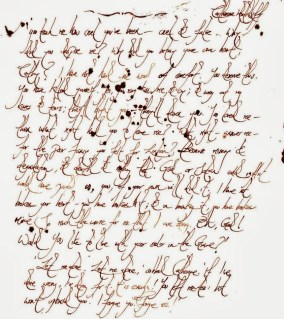 You teach me how cruel you've been - cruel & false. Why
did you despise me? Why did you betray your own heart
Cathy? I have not one word of comfort. You deserve this.
You have killed yourself. you may kiss me & cry; & wring out my
kisses & tears: you. You loved me -
then what right had you to leave me? right - answer me -
for the poor fancy you felt for Linton? Because misery &
degradation, & death & God or Satan could inflict
would have parted us, you, of your own will did it. I have not
broken your heart - you have broken it; & in breaking it you have broken
mine. So much the worse for me that I am strong. Oh, God!
Would you like to live with your soul in the Grave?"
"Let me alone. Let me alone," sobbed Catherine. "If I've
done wrong, I'm dying for it. It is enough! You left me too: but I
won't upbraid you! I forgive you. Forgive me!"